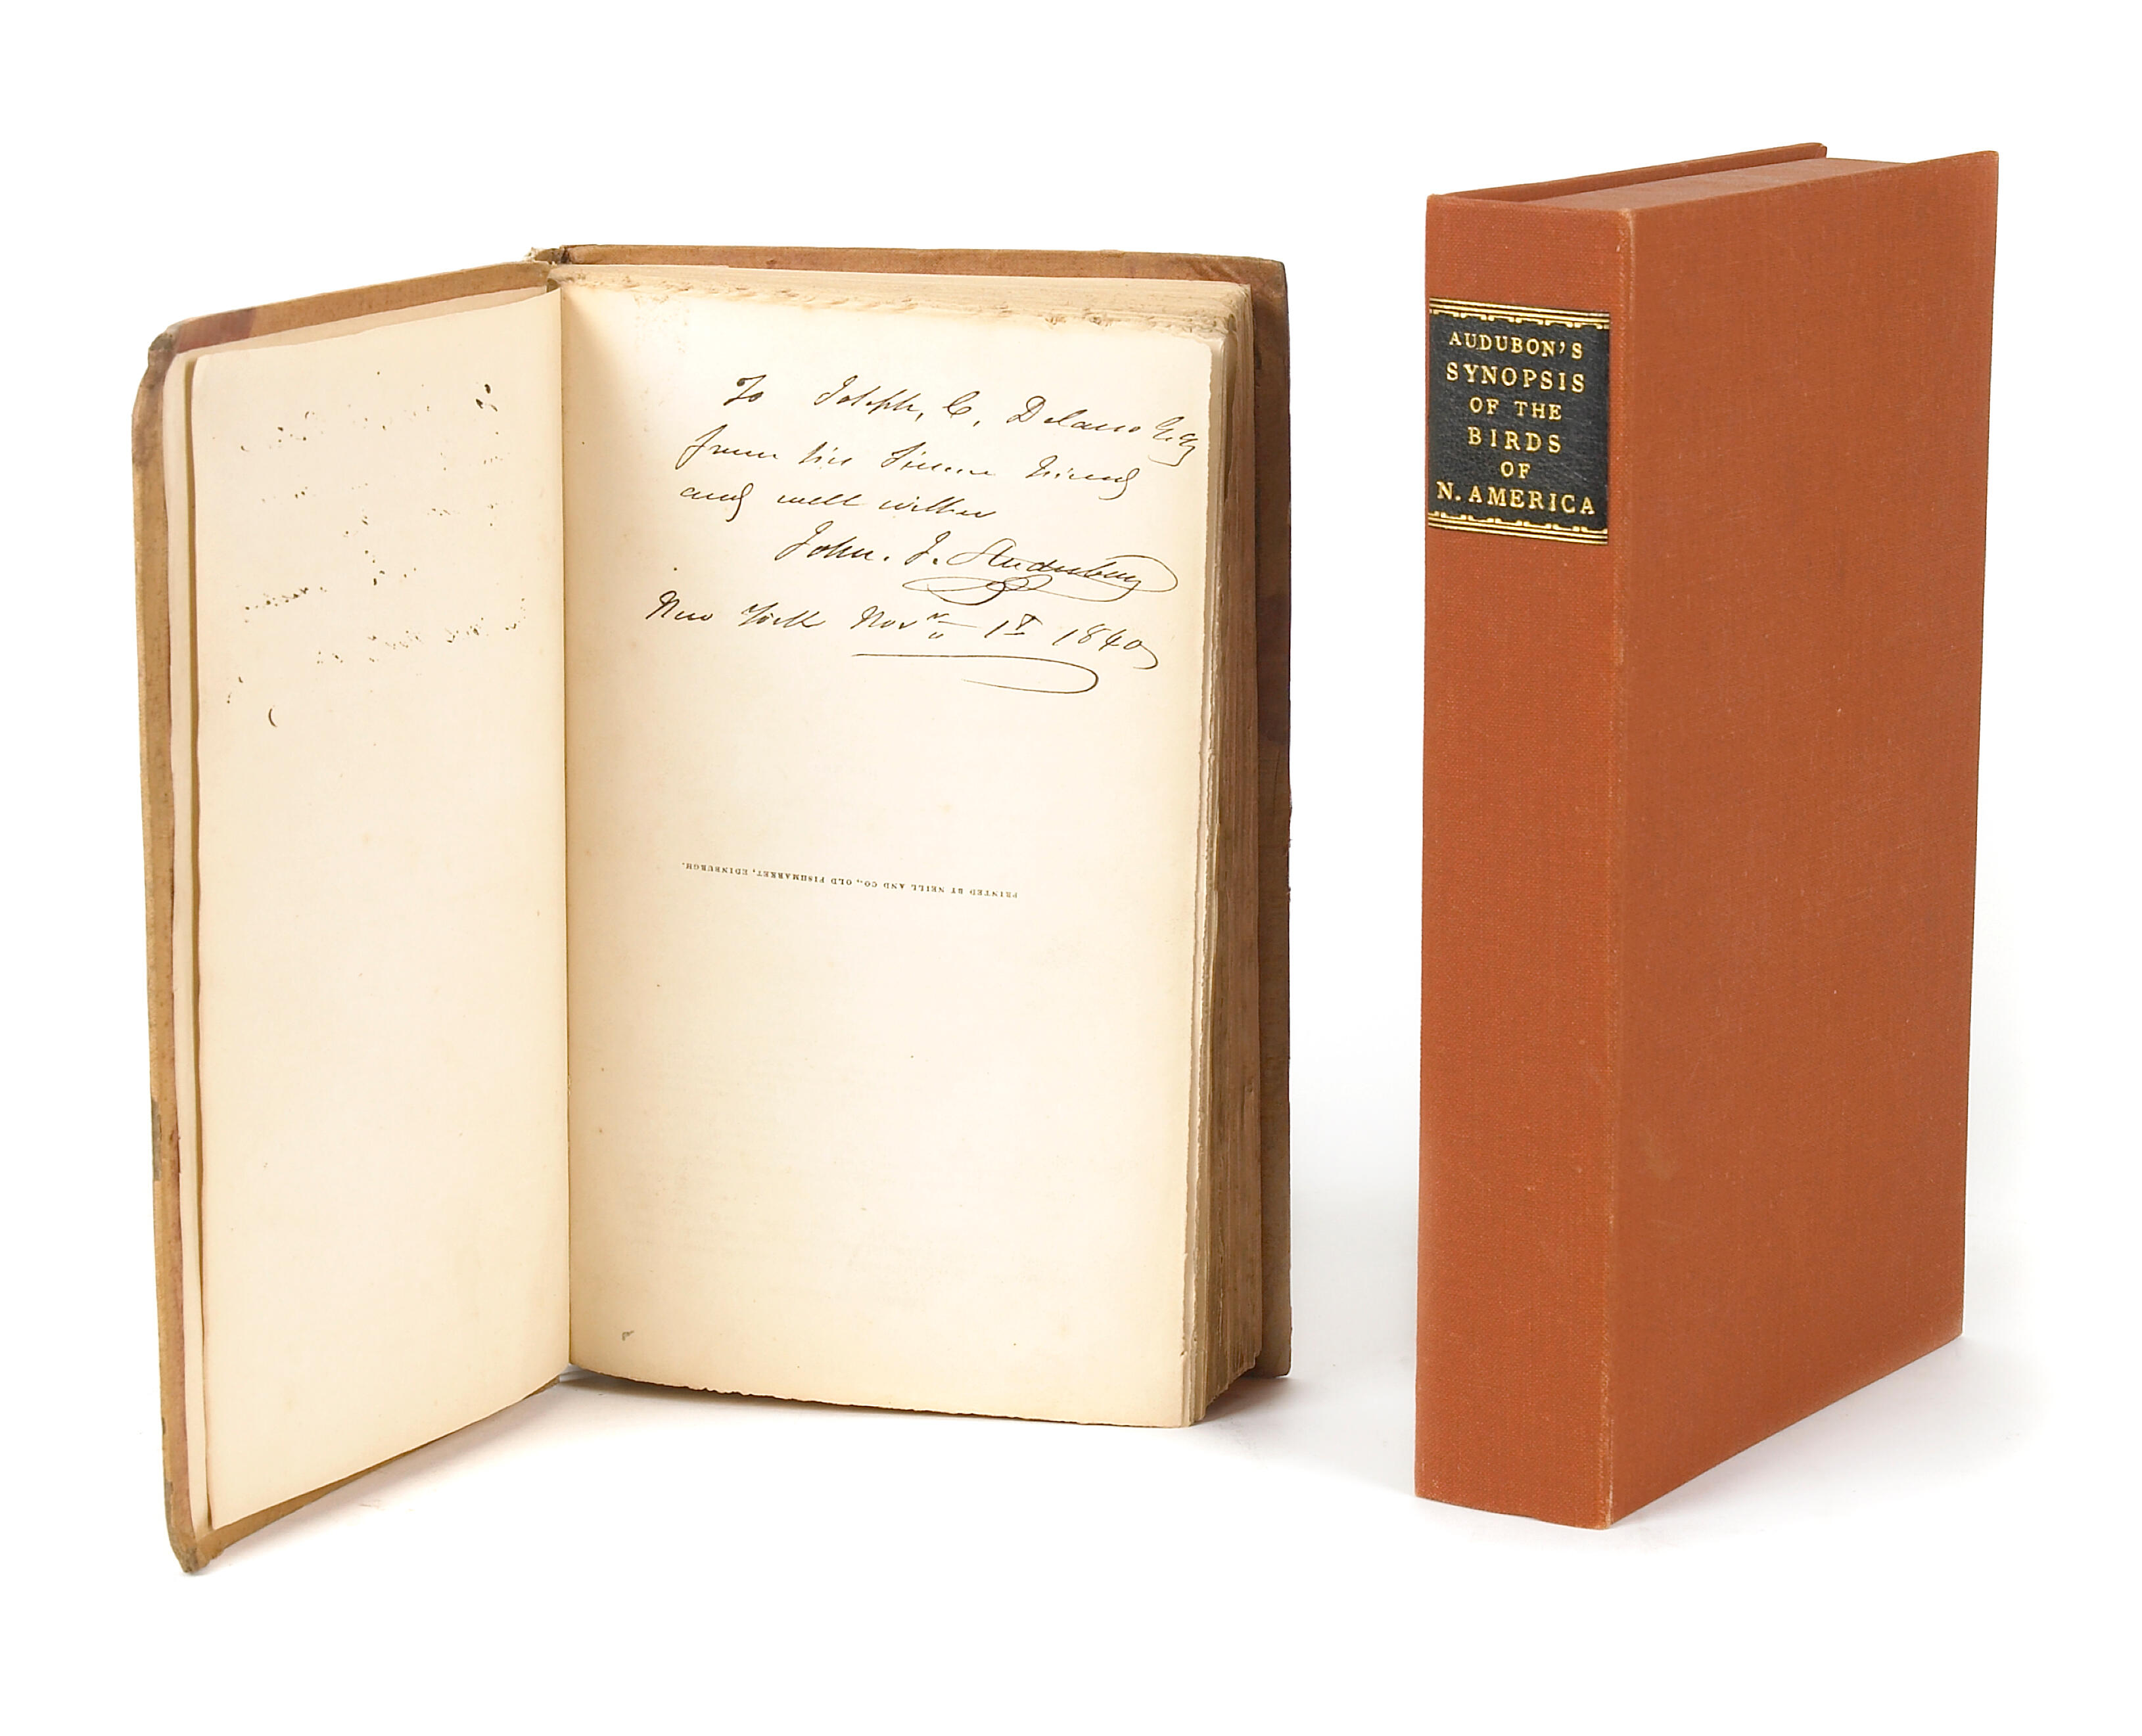 To Joseph, C, Delano Esqr
from his sincere friend
and well wisher
John. J. Audubon
New York Novr 1st 1840
PRINTED BY NEILL AND CO., OLD FISHMARKET, EDINBURGH.
AUDUBON'S
SYNOPSIS
OF THE
BIRDS
OF
N. AMERICA